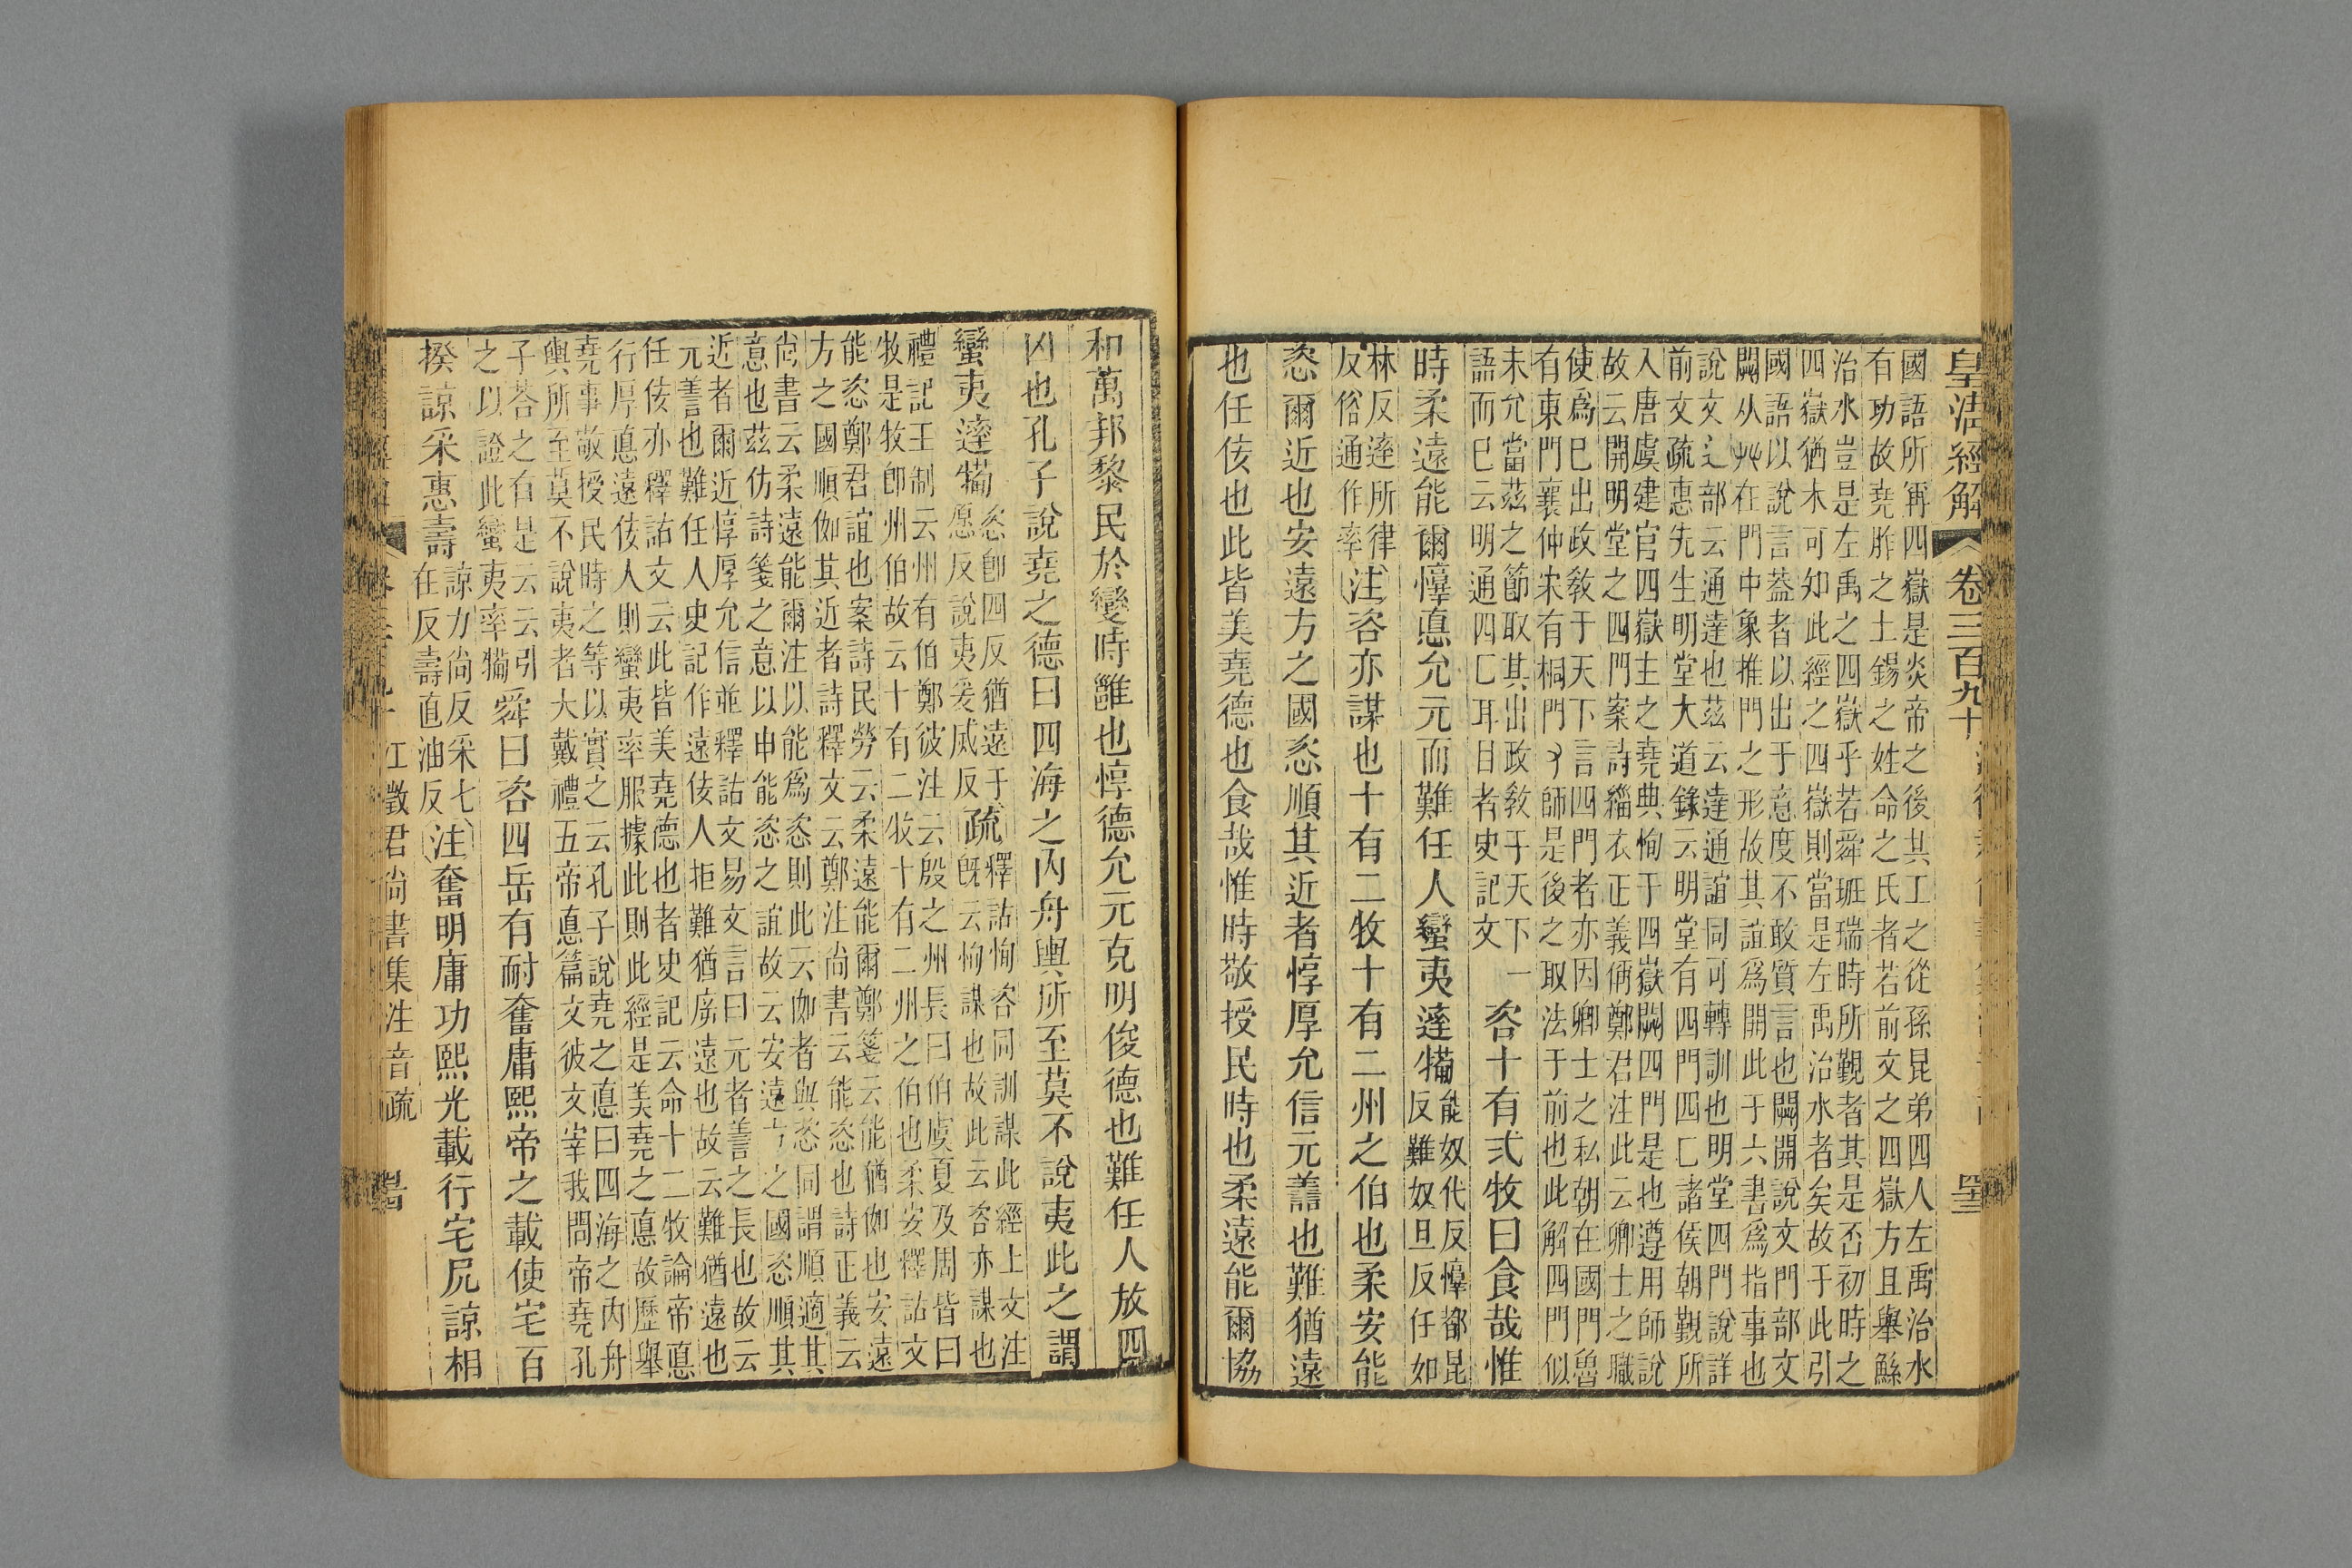 皇清經解
卷三百九十
國語所再四嶽是炎帝之後其工之從孫昆弟四人左禹治水
有功故堯胙之土錫之姓命之氏者若前文之四嶽方且舉鯀
治水豈是左禹之四嶽乎若舜班瑞時所覲者其是否初時之
四嶽猶未可知此經之四嶽則當是左禹治水者矣故于此引
國語以說言葢者以出于意度不敢質言也闢開說文門部文
闢从𠬜在門中象推門之形故其誼爲開此于六書爲指事也
說文辵部云通達也茲云達通誼同可轉訓也明堂四門說詳
前文疏惠先生明堂大道錄云明堂有四門四匚諸侯朝覲所
入唐虞建官四嶽主之堯典恂于四嶽闢四門是也遵用師說
故云開明堂之四門案詩緇衣正義偁鄭君注此云卿士之職
使爲巳出政敎于天下言四門者亦因卿士之私朝在國門魯
有東門襄仲宋有桐門又師是後之取法于前也此解四門似
未允當茲之節取其出政敎于天下一
語而巳云明通四匚耳目者史記文
咨十有弍牧曰食哉惟
時柔遠能爾惇悳允元而難任人蠻夷達𤛎
能奴代反惇都昆
反難奴旦反任如
林反達所律
反俗通作率
注咨亦謀也十有二牧十有二州之伯也柔安能
恣爾近也安遠方之國恣順其近者惇厚允信元譱也難猶遠
也任佞也此皆美堯德也食哉惟時敬授民時也柔遠能爾協
和萬邦黎民於變時雝也惇德允元克明俊德也難任人放四
凶也孔子說堯之德曰四海之內舟輿所至莫不說夷此之謂
蠻夷達𤛎
恣卽四反猶遠于
愿反說夷爰戚反
疏
釋詁恂咨同訓謀此經上文注
旣云恂謀也故此云咨亦謀也
禮記王制云州有伯鄭彼注云殷之州長曰伯虞夏及周皆曰
牧是牧卽州伯故云十有二牧十有二州之伯也柔安釋詁文
能恣鄭君誼也案詩民勞云柔遠能爾鄭箋云能猶伽也安遠
方之國順伽其近者詩釋文云鄭注尚書云能恣也詩正義云
尚書云柔遠能爾注以能爲恣則此云伽者與恣同謂順適其
意也茲仿詩箋之意以申能恣之誼故云安遠方之國恣順其
近者爾近惇厚允信並釋詁文易文言曰元者譱之長也故云
元譱也難任人史記作遠佞人拒難猶庌遠也故云難猶遠也
任佞亦釋詁文云此皆美堯德也者史記云命十二牧論帝悳
行厚悳遠佞人則蠻夷率服據此則此經是美堯之悳故歷舉
堯事敬授民時之等以實之云孔子說堯之悳曰四海之內舟
輿所至莫不說夷者大戴禮五帝悳篇文彼文宰我問帝堯孔
子荅之有是云云引
之以證此蠻夷率𤛎
舜曰咨四岳有耐奮庸熙帝之載使宅百
揆諒采惠壽
諒力尚反采七
在反壽直油反
注奮明庸功熙光載行宅凥諒相
江徵君尚書集注音疏